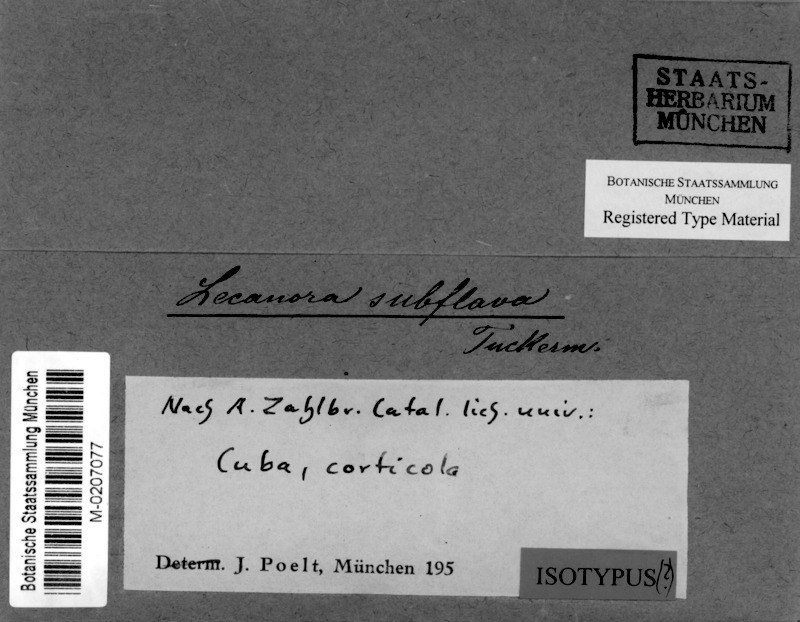 STAATS-
HERBARIUM
MÜNCHEN
BOTANISCHE STAATSSAMMLUNG
MÜNCHEN
Registered Type Material
Lecanora subflava
Tuckerm.
Nach A. Zahlbr. Catal. lich. univ.:
Cuba, corticola
Determ. J. Poelt, München 195
ISOTYPUS(?)
Botanische Staatssammlung München
M-0207077